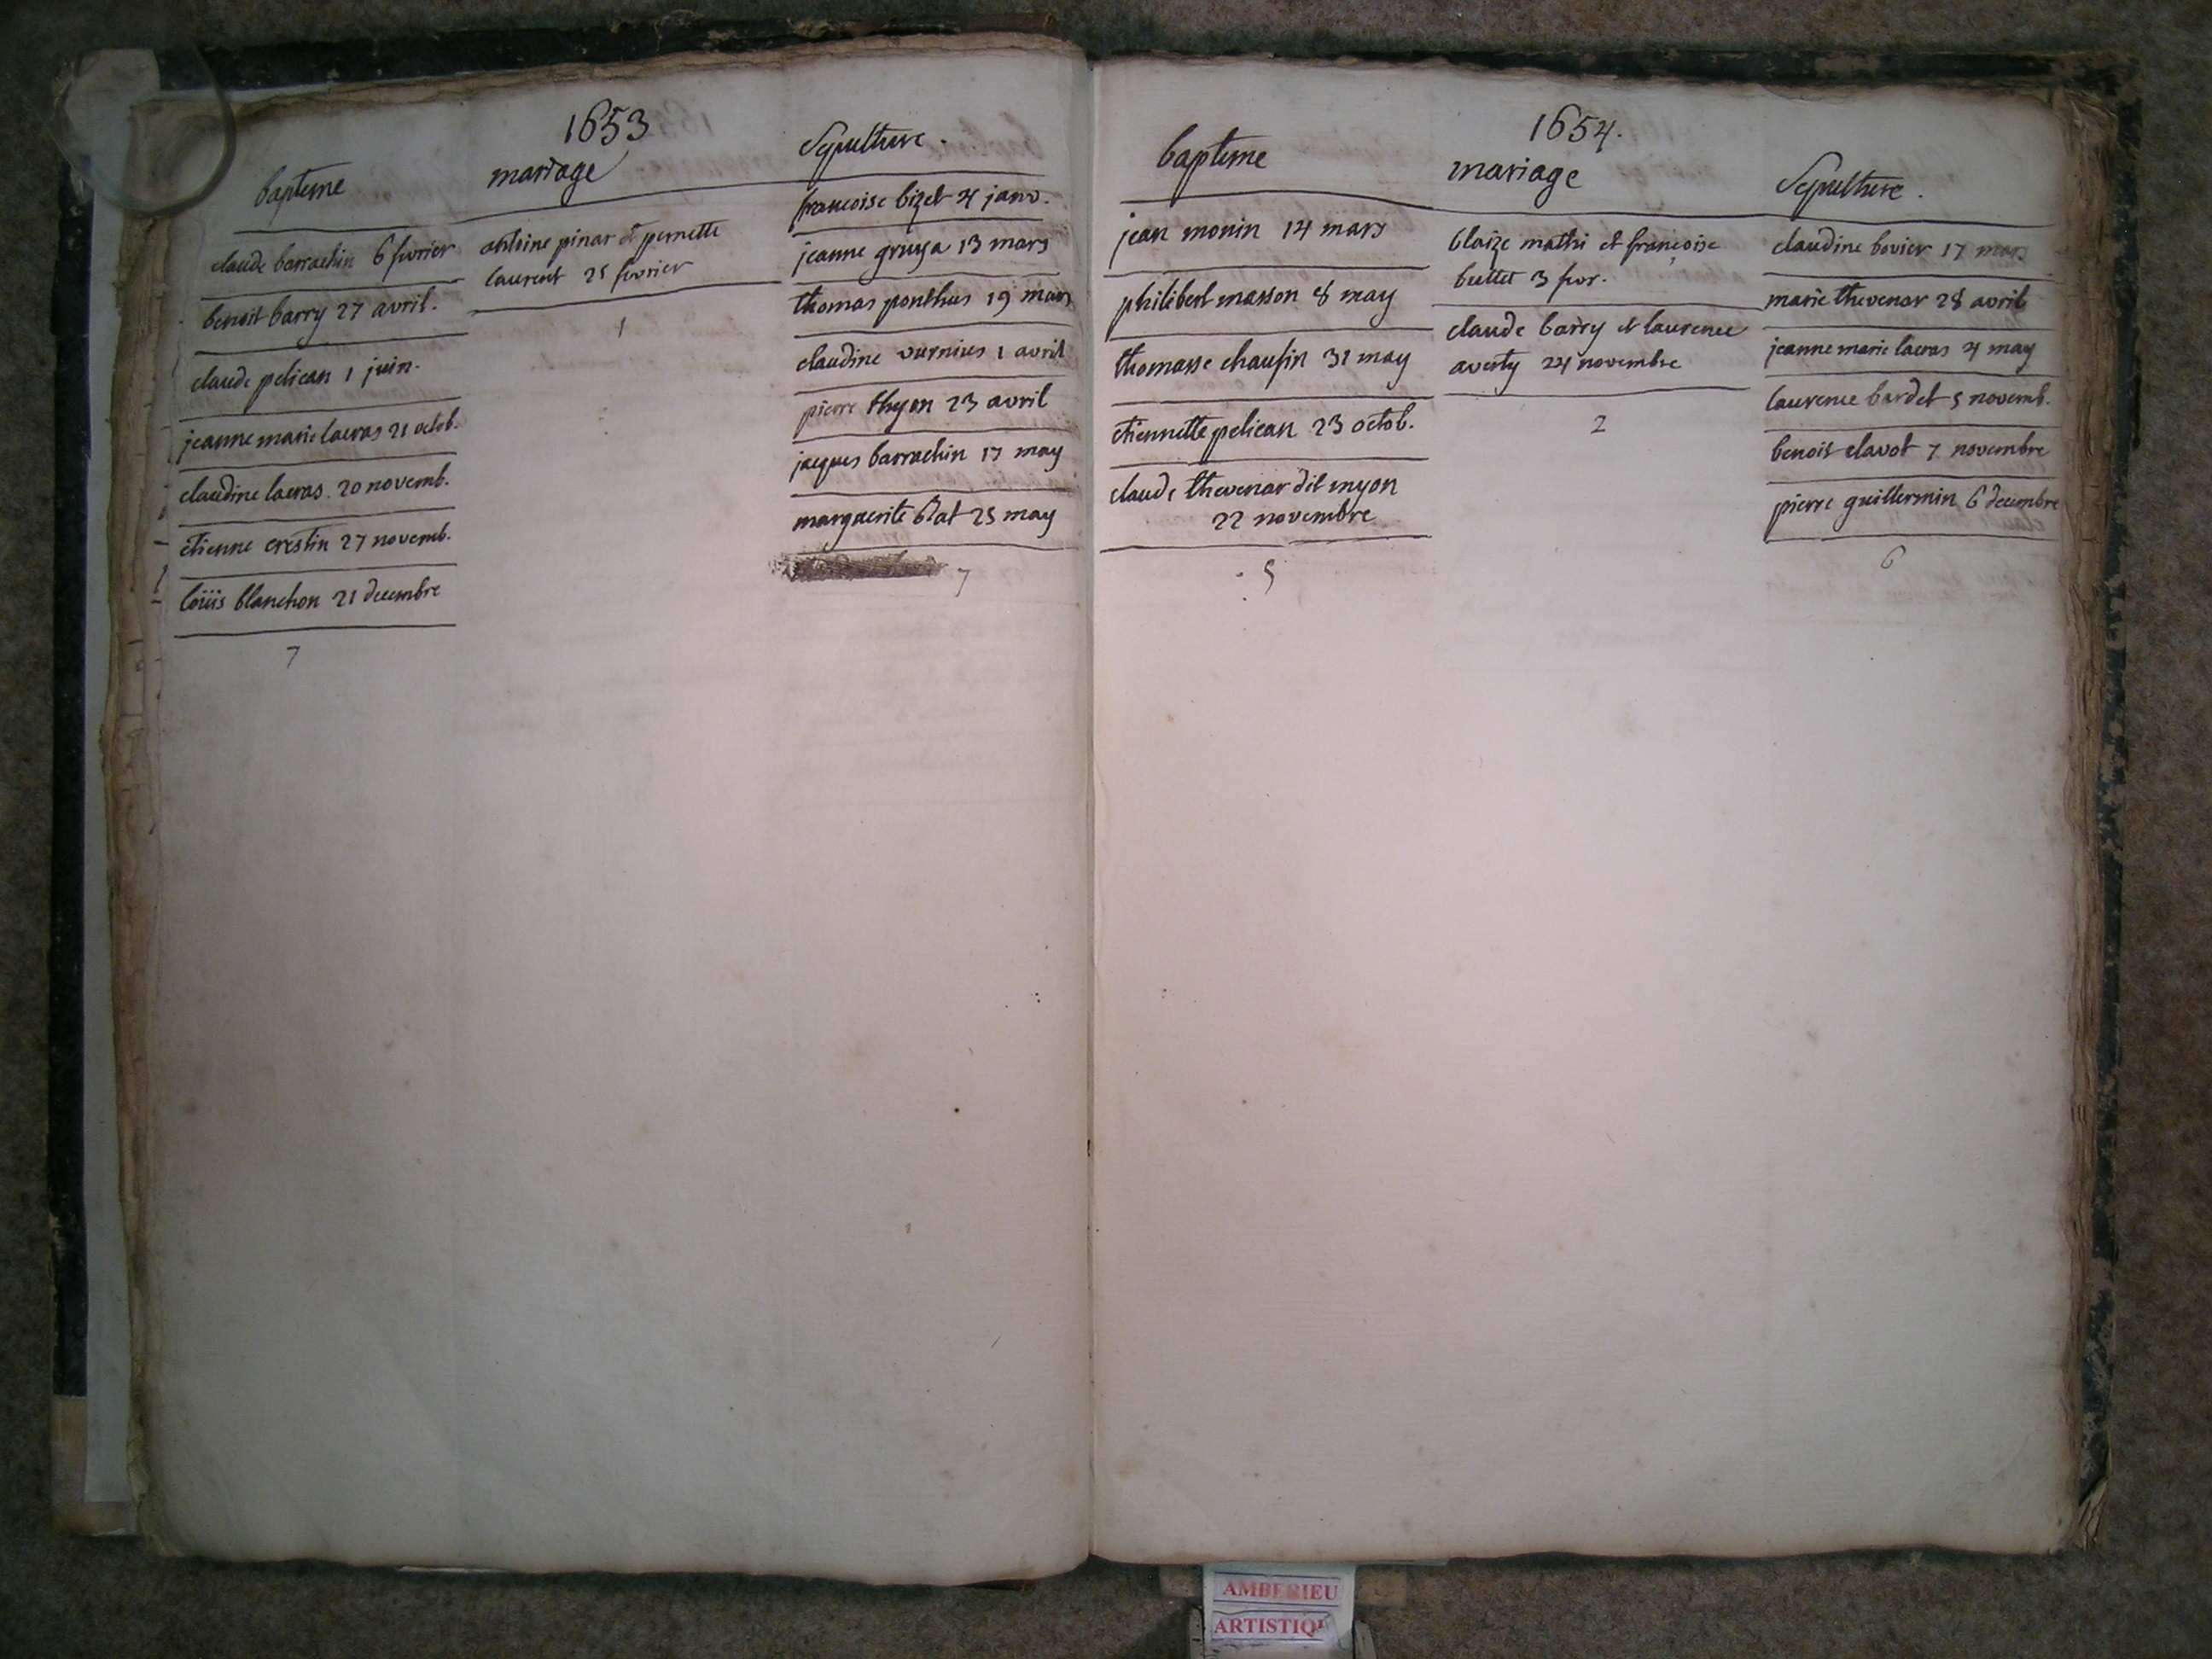 1653
bapteme
claude barrachin 6 fevrier
benoit barry 27 avril.
claude pelican 1 juin.
jeanne marie lacras 21 octob.
claudine lacras. 20 novemb.
etienne crestin 27 novemb.
loüis blanchon 21 decembre
7
mariage
antoine pinar et pernette
laurent 25 fevrier
1
Sepulture.
francoise bizet 4 janv.
jeanne gruya 13 mars
thomas ponthus 19 mars
claudine vurnius 1 avril
pierre thyon 23 avril
jacques barrachin 17 may
marguerite blat 25 may
7
1654.
bapteme
jean monin 14 mars
philibert masson 8 may
thomasse chaufin 31 may
etiennette pelican 23 octob.
claude thevenar dit myon
22 novembre
5
mariage
blaize mathi et françoise
buttet 3 fevr.
claude barry et laurence
averty 24 novembre
2
Sepulture.
claudine bovier 17 mars
marie thevenar 28 avril
jeanne marie lacras 4 may
laurence bardet 5 novemb.
benoit clavot 7 novembre
pierre guillermin 6 decembre
6
AMBERIEU
ARTISTIQU